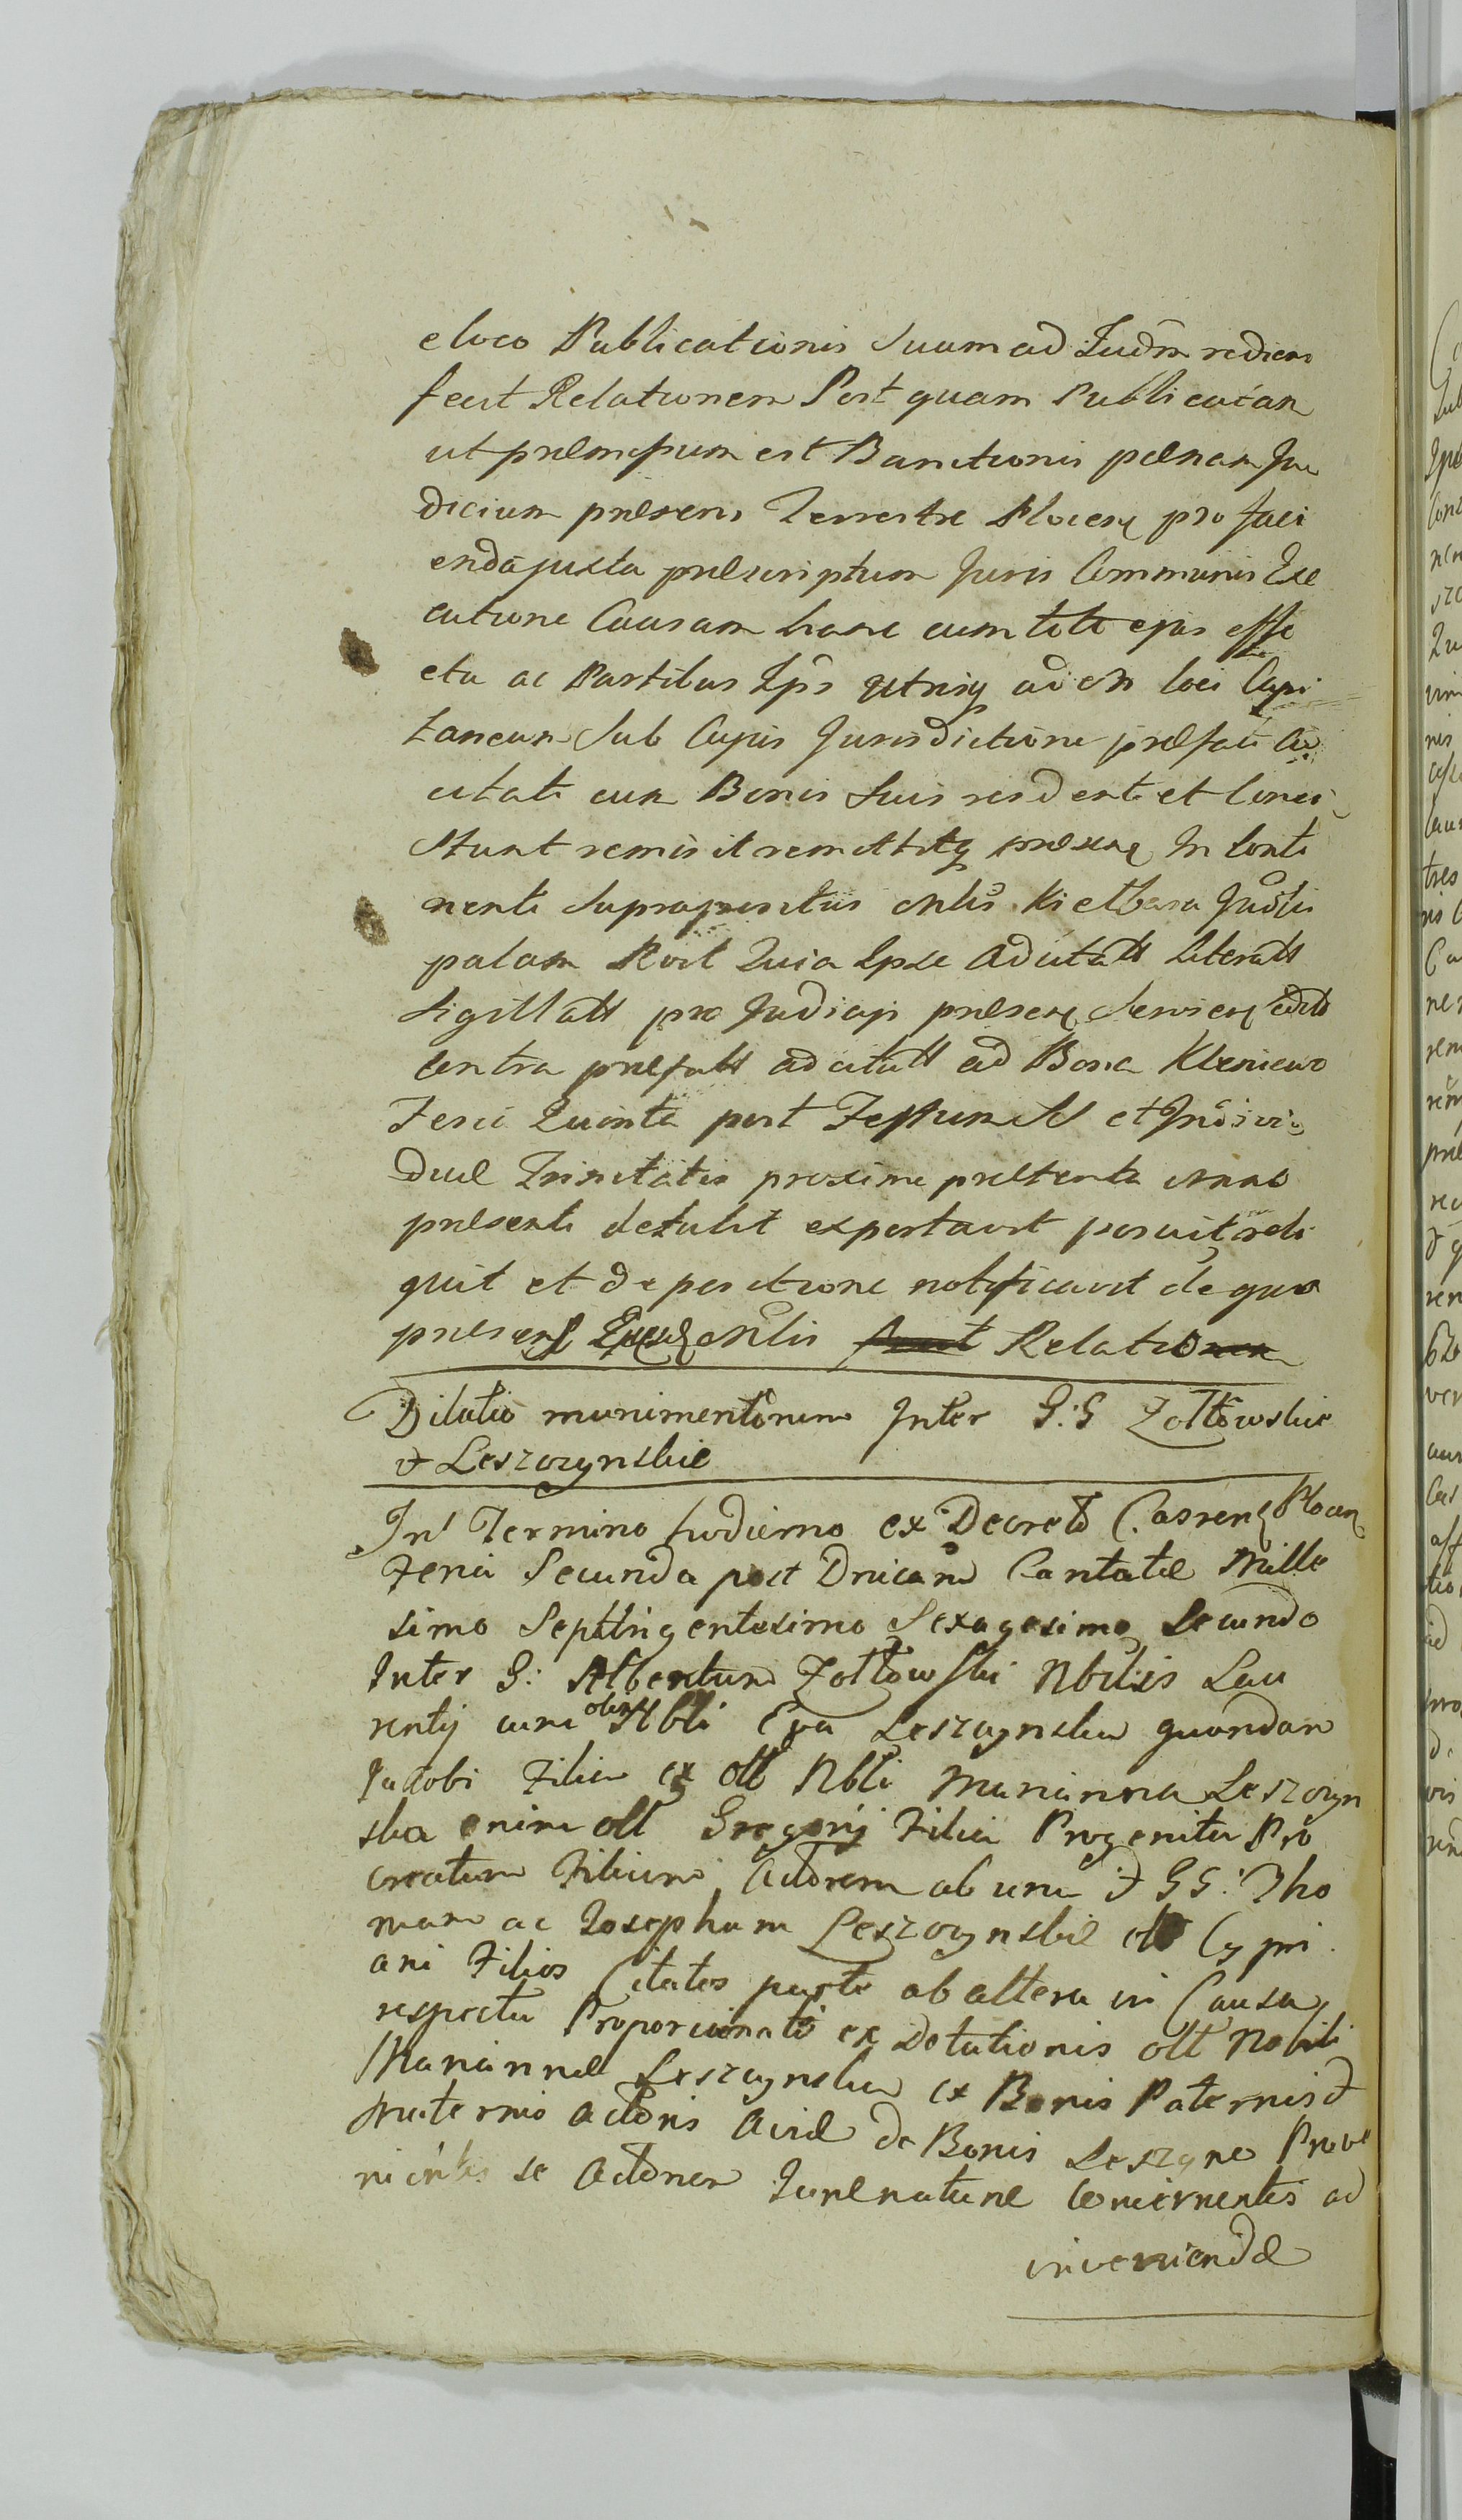 e loco Publicationis Suum ad Judm rediens
fecit Relationem Post quam Publicatam
ut præmissum est Bannitionis pænam Ju
dicium præsens Terrestre Plocen pro faci
enda juxta præscriptum Juris Communis Exe
cutione Causam hanc cum toto ejus effe
ctu ac Partibus Ips utrisq ad loci Capi
taneum Sub Cujus Jurisdictione præfati Ci
citati cum Bonis Suis resident et Consi
stunt remisit remittitq præsen In Conti
nenti Suprapositus Mlis Kiełbasa Judli
palam Rocl Quia Ipse Adcitatt Literatt
Sigillatt pro Judicijs præsen Servien edit
contra præfatt adcitatt ad Bona Kleniewo
Feria Quinta post Festum SS et Indivi
duæ Trinitatis proxime præterita Anno
præsenti detulit exportavit posuit reli
quit et de positione notificavit de quo
præsens Ejusd Mlis Relatio
Dilatio munimentorum Inter G:G Zołtowskie
& Leszczynskie
In Termino hodierno ex Decreto Castren Plocen
Feria Secunda post Dnicam Cantate Mille
simo Septingentesimo Sexagesimo Secundo
Inter G: Albertum Zołtowski Nbilis Lau
rentij cum olim Nbli Eva Leszczynska quondam
Jacobi Filia ex oll Nbli Marianna Leszczyn
ska enim oll Gregorij Filia Progenita Pro
creatum Filium Actorem ab una & GG: Tho
mam ac Josephum Leszczynskie oll Cypri
ani Filios Citatos parte ab altera in Causa
respectu Proporcionato ex Dotationis oll Nobili
Mariannæ Leszczynska ex Bonis Paternis &
Maternis Actoris Aviæ de Bonis Leszczno Prove
nientis se Actorem Jure naturæ Concernentis ad
inveniendæ